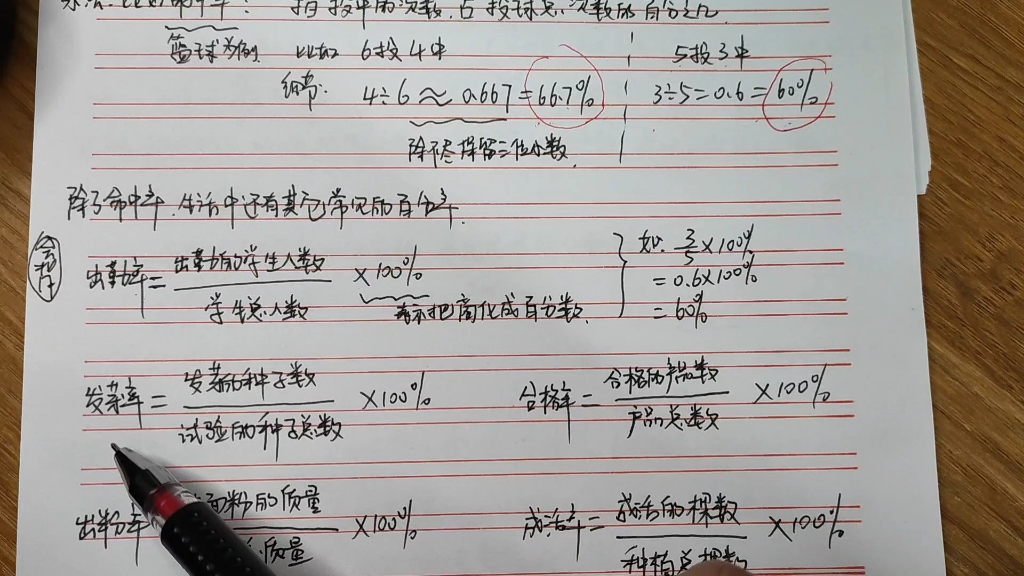 命中率: 指投中的次数,占投球总次数的百分之几
篮球为例 比如 6投4中 5投3中
4÷6≈0.667=66.7% 3÷5=0.6=60%
除不尽保留三位小数.
除了命中率.生活中还有其它常见的百分率.
出勤率=出勤的学生人数/学生总人数×100% 表示把商化成百分数.
如: 3/5×100%
=0.6×100%
=60%
发芽率=发芽的种子数/试验的种子总数×100% 合格率=合格的产品数/产品总数×100%
出粉率 面粉的质量/质量×100% 成活率=成活的棵数/种植总棵数×100%